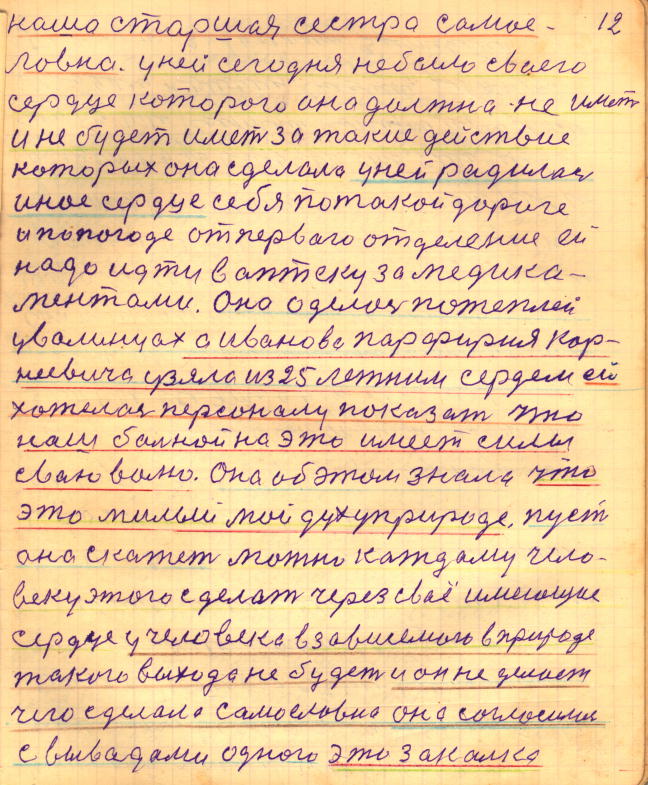 наша старшая сестра самое- 12
ловна. уней сегодня небыло своего
сердце которого она должна не имет
и не будет имет за такие действие
которых она сделала уней радилась
иное сердце себя потакой дороге
и попогоде от перваго отделение ей
надо идти в аптеку за медика-
ментами. Она оделась потеплей
увалинцах а иванова парфирия Кор-
неевича узяла из 25 летним сердцем ей
хотелась персоналу показат что
наш балной на это имеет силы
сваю волю. Она об этом знала что
это милый мой дух уприроде, пуст
она скажет можно каждаму чело-
веку этого сделат через сваё имеющие
сердце у человека взависемого вприроде
такого выхода не будет и он не делает
чего сделала самословна она согласилас
с вывадами одного это закалка